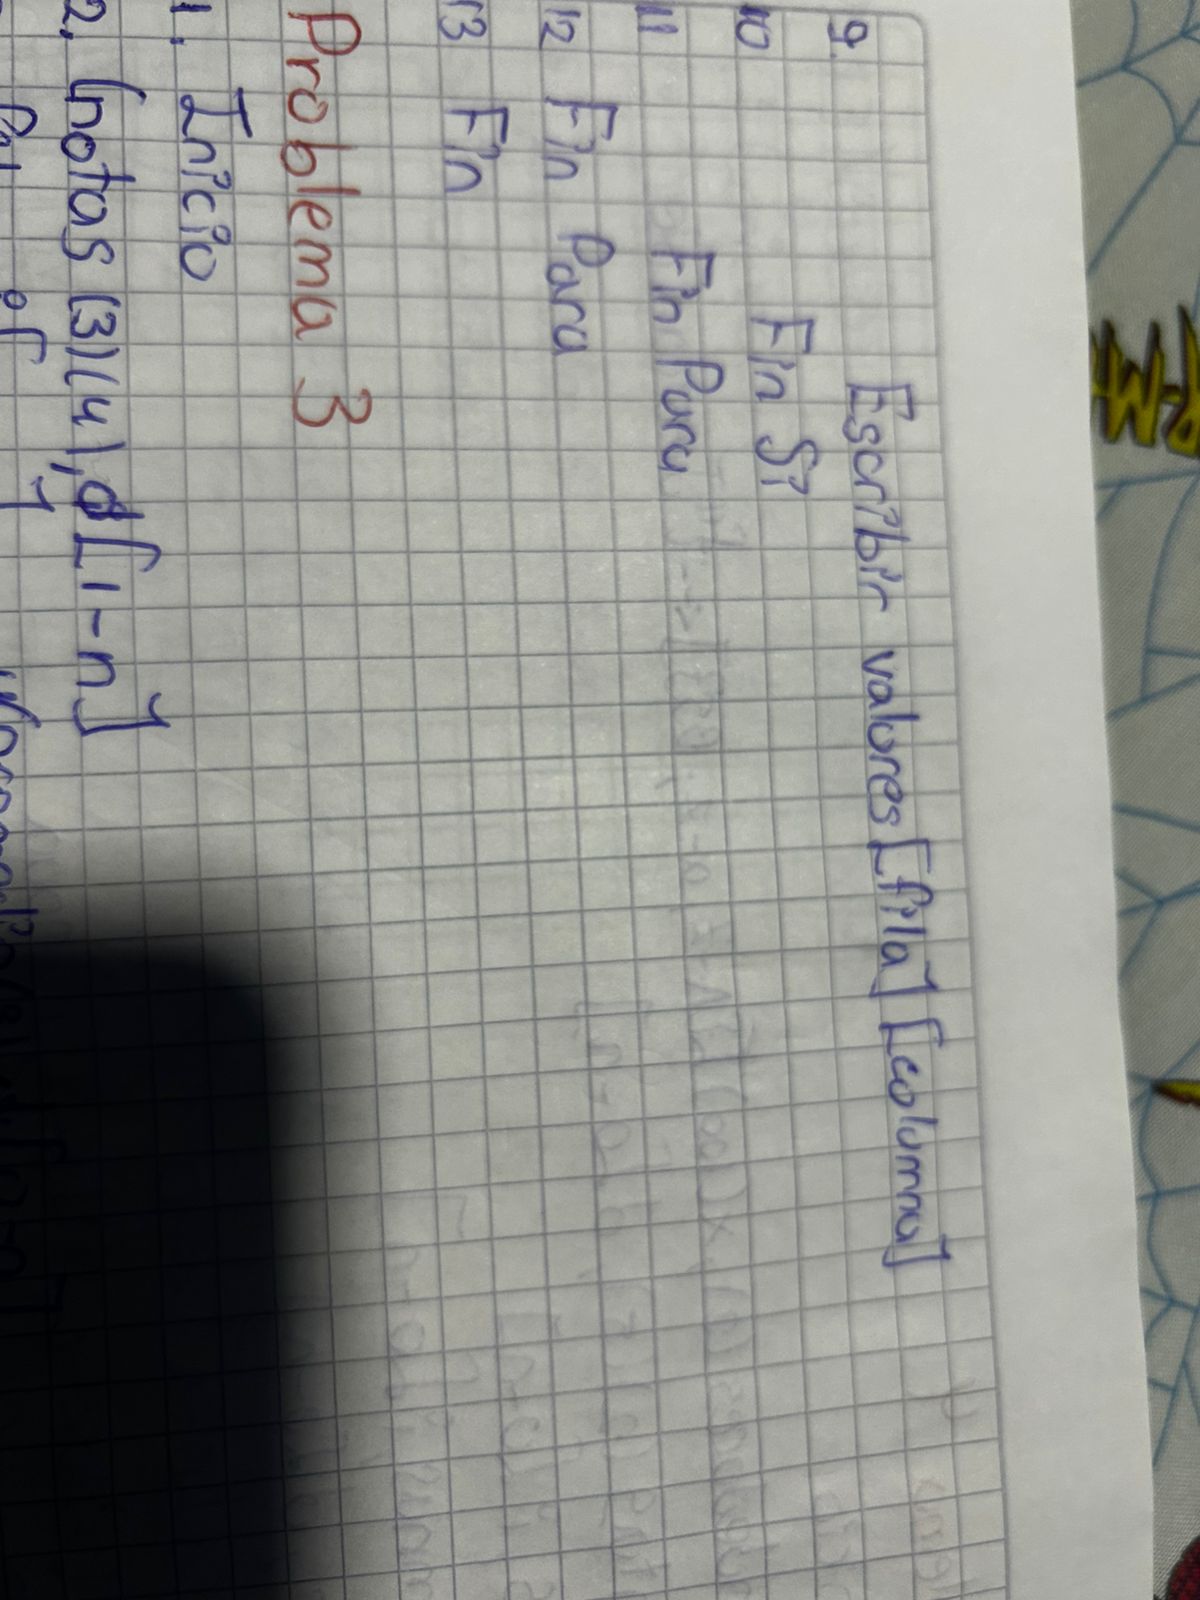 9. Escribir valores [fila] [columna]
10 Fin Si
11 Fin Para
12 Fin Para
13 Fin
Problema 3
1. Inicio
2. (notas (3)(4), d[1-n]